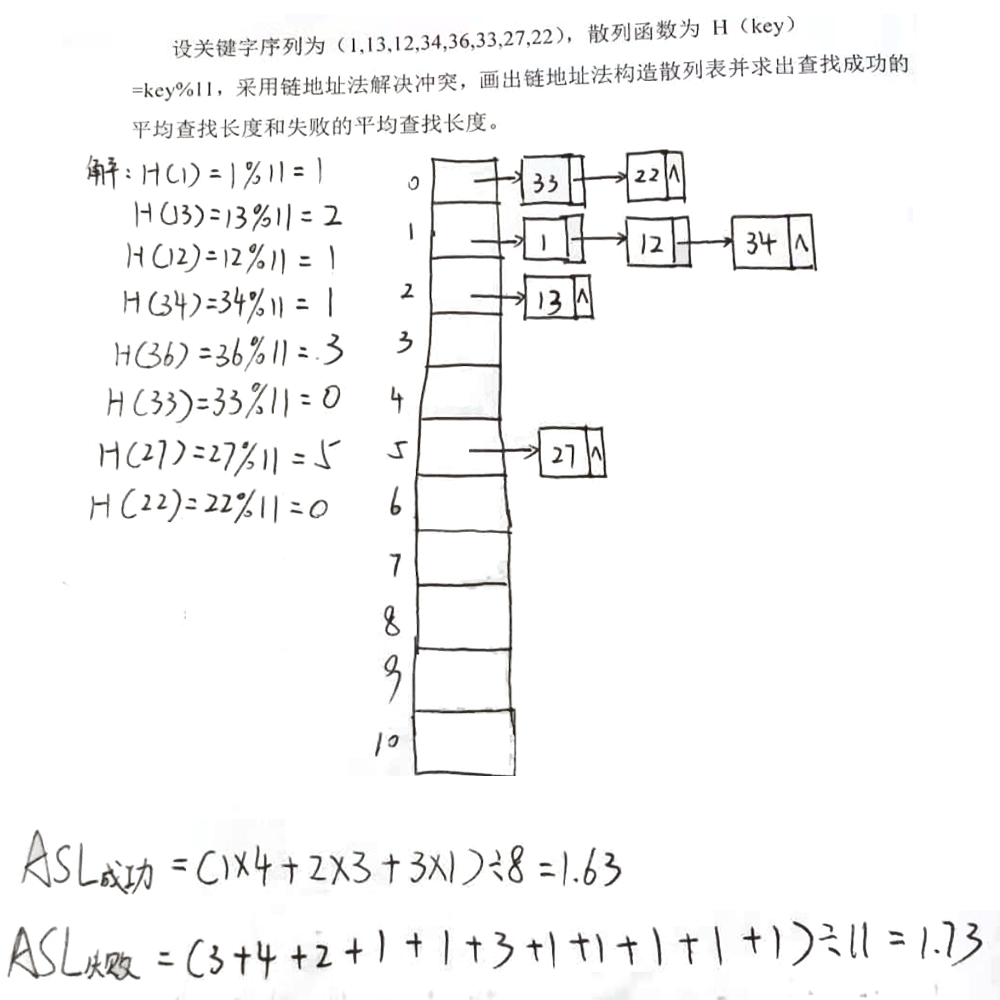 设关键字序列为（1,13,12,34,36,33,27,22），散列函数为 H（key）
=key%11，采用链地址法解决冲突，画出链地址法构造散列表并求出查找成功的
平均查找长度和失败的平均查找长度。
解：H(1)=1%11=1
H(13)=13%11=2
H(12)=12%11=1
H(34)=34%11=1
H(36)=36%11=3
H(33)=33%11=0
H(27)=27%11=5
H(22)=22%11=0
0 33 22 ∧
1 1 12 34 ∧
2 13 ∧
3
4
5 27 ∧
6
7
8
9
10
ASL成功=(1×4+2×3+3×1)÷8=1.63
ASL失败=(3+4+2+1+1+3+1+1+1+1+1)÷11=1.73